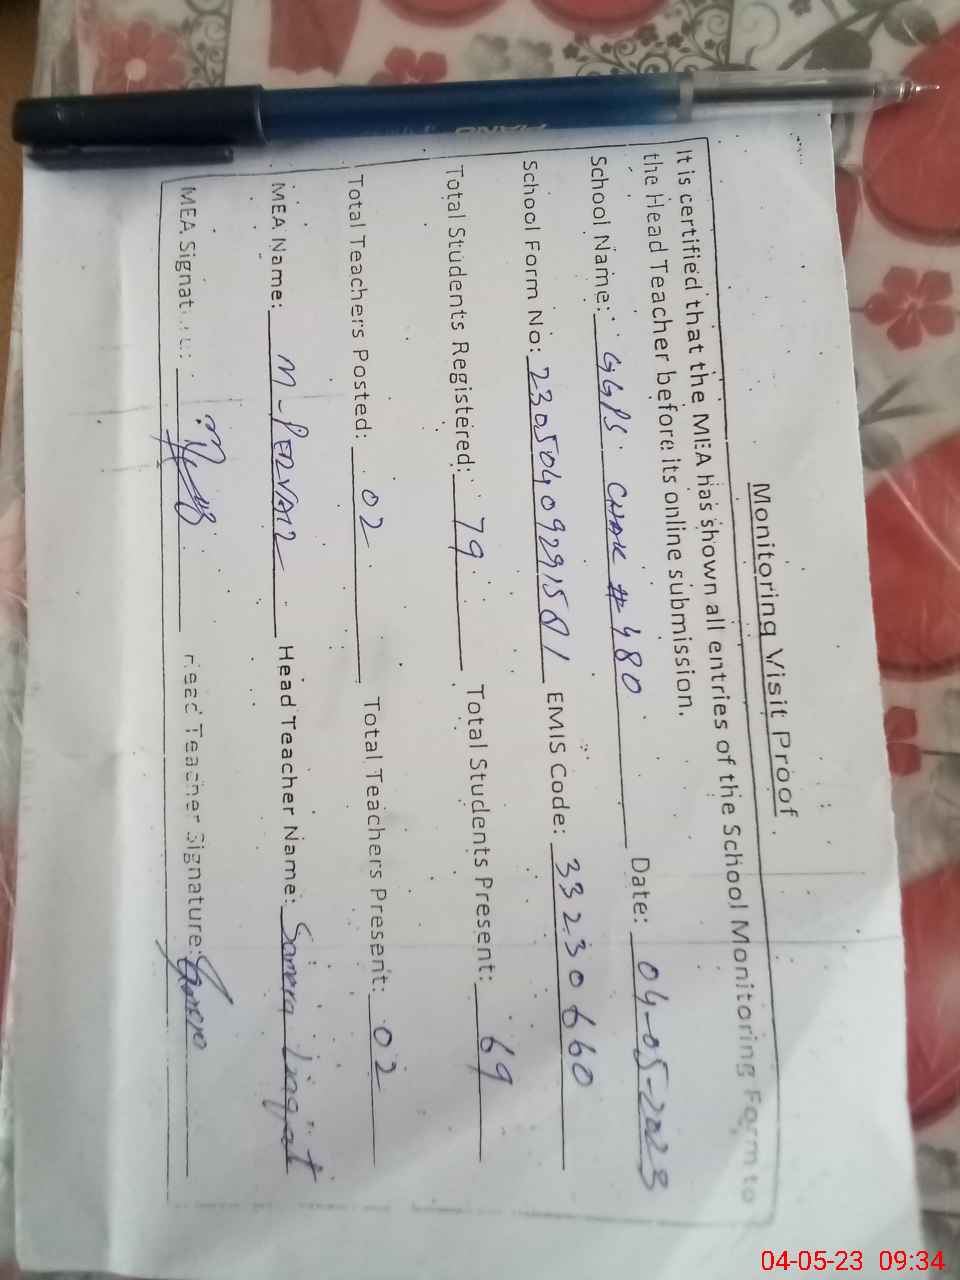 PIANO
Monitoring Visit Proof
It is certified that the MEA has shown all entries of the School Monitoring Form to
the Head Teacher before its online submission.
School Name: GGPS CHAK # 480 Date: 04-05-2023
School Form No: EMIS Code: 33230660
Total Students Registered: 79 Total Students Present: 69
Total Teachers Posted: 02 Total Teachers Present: 02
MEA Name: M-PERVAIZ Head Teacher Name:
MEA Signature: Head Teacher Signature:
04-05-23 09:34